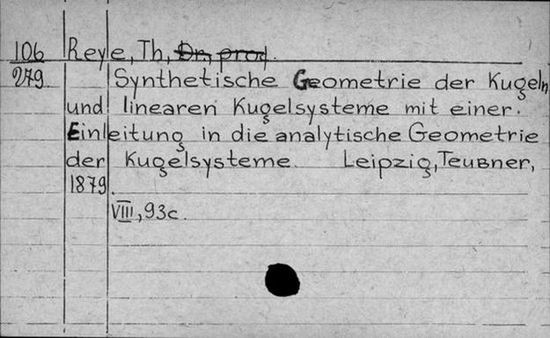 106 Reye, Th, Dr, prof.
279 Synthetische Geometrie der Kugeln
und linearen Kugelsysteme mit einer.
Einleitung in die analytische Geometrie
der Kugelsysteme. Leipzig, Teubner,
1879.
VIII, 93c.